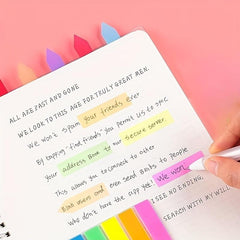 ALL ARE PAST AND GONE
WE LOOK TO THIS AGE FOR TRULY GREAT MEN.
We won't spam your friends ever
By tapping "find friends" you permit us to sync
Your address book to our secure server.
This allows you to connect to other
kind users and even send invits to people
Who don't have the app yet! We won
I SEE NO ENDING,
SEARCH WITH MY WILL